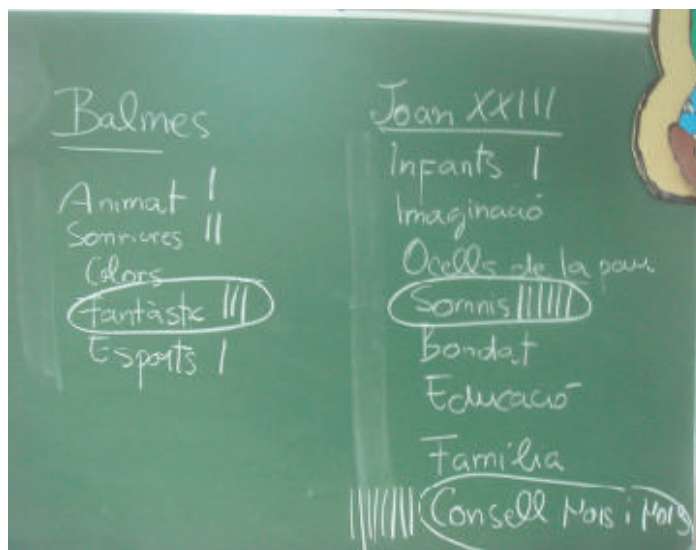 Balmes
Animat I
Somriures II
Colors
Fantàstic III
Esports I
Joan XXIII
Infants I
Imaginació
Ocells de la pau
Somnis IIIIII
Bondat
Educació
Família
IIIIIIII Consell Nois i Nois